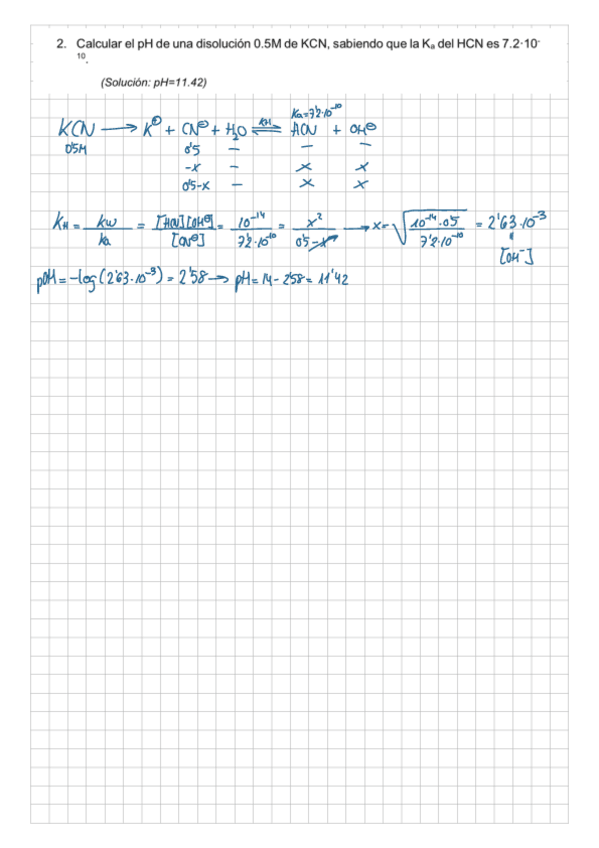 2. Calcular el pH de una disolución 0.5M de KCN, sabiendo que la Kₐ del HCN es 7.2·10⁻
¹⁰.
(Solución: pH=11.42)
Ka=7'2·10⁻¹⁰
KCN → K⊕ + CN⊖ + H₂O ⇌ KH HCN + OH⊖
0'5M 0'5 — — —
-x — x x
0'5-x — x x
KH = kw/ka = [HCN][OH⊖]/[CN⊖] = 10⁻¹⁴/7'2·10⁻¹⁰ = x²/0'5-x → x = √(10⁻¹⁴·0'5/7'2·10⁻¹⁰) = 2'63·10⁻³
[OH⁻]
pOH = -log(2'63·10⁻³) = 2'58 → pH = 14 - 2'58 = 11'42